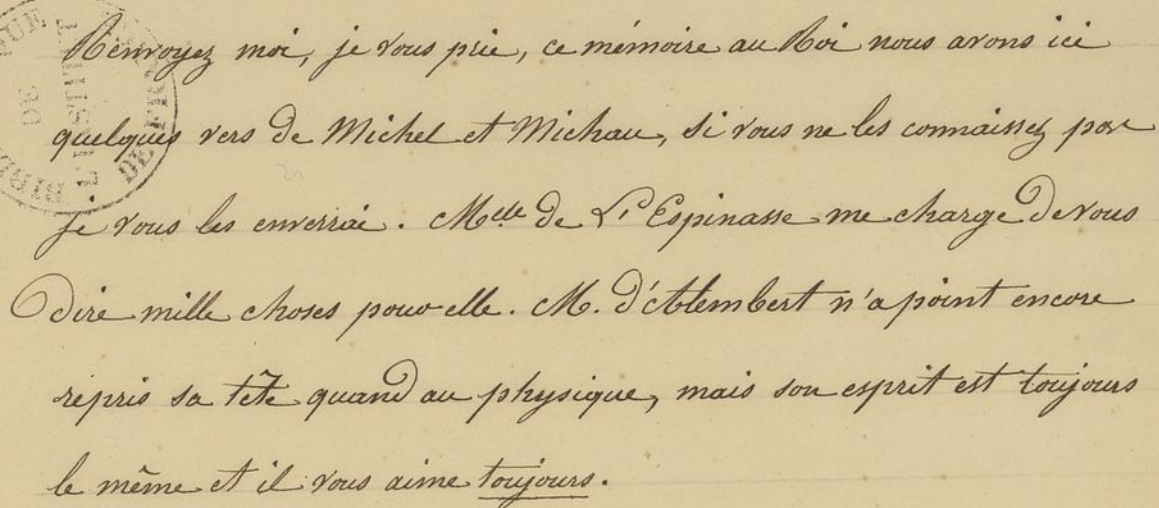 Renvoyez moi, je vous prie, ce mémoire au Roi nous avons ici
quelques vers de Michel et Michau, si vous ne les connaissez pas
je vous les enverrai. Melle de L'Espinasse me charge de vous
dire mille choses pour elle. M. d'Alembert n'a point encore
repris sa tête quand au physique, mais son esprit est toujours
le même et il vous aime toujours.
DE
L'INSTITUT
DE FR